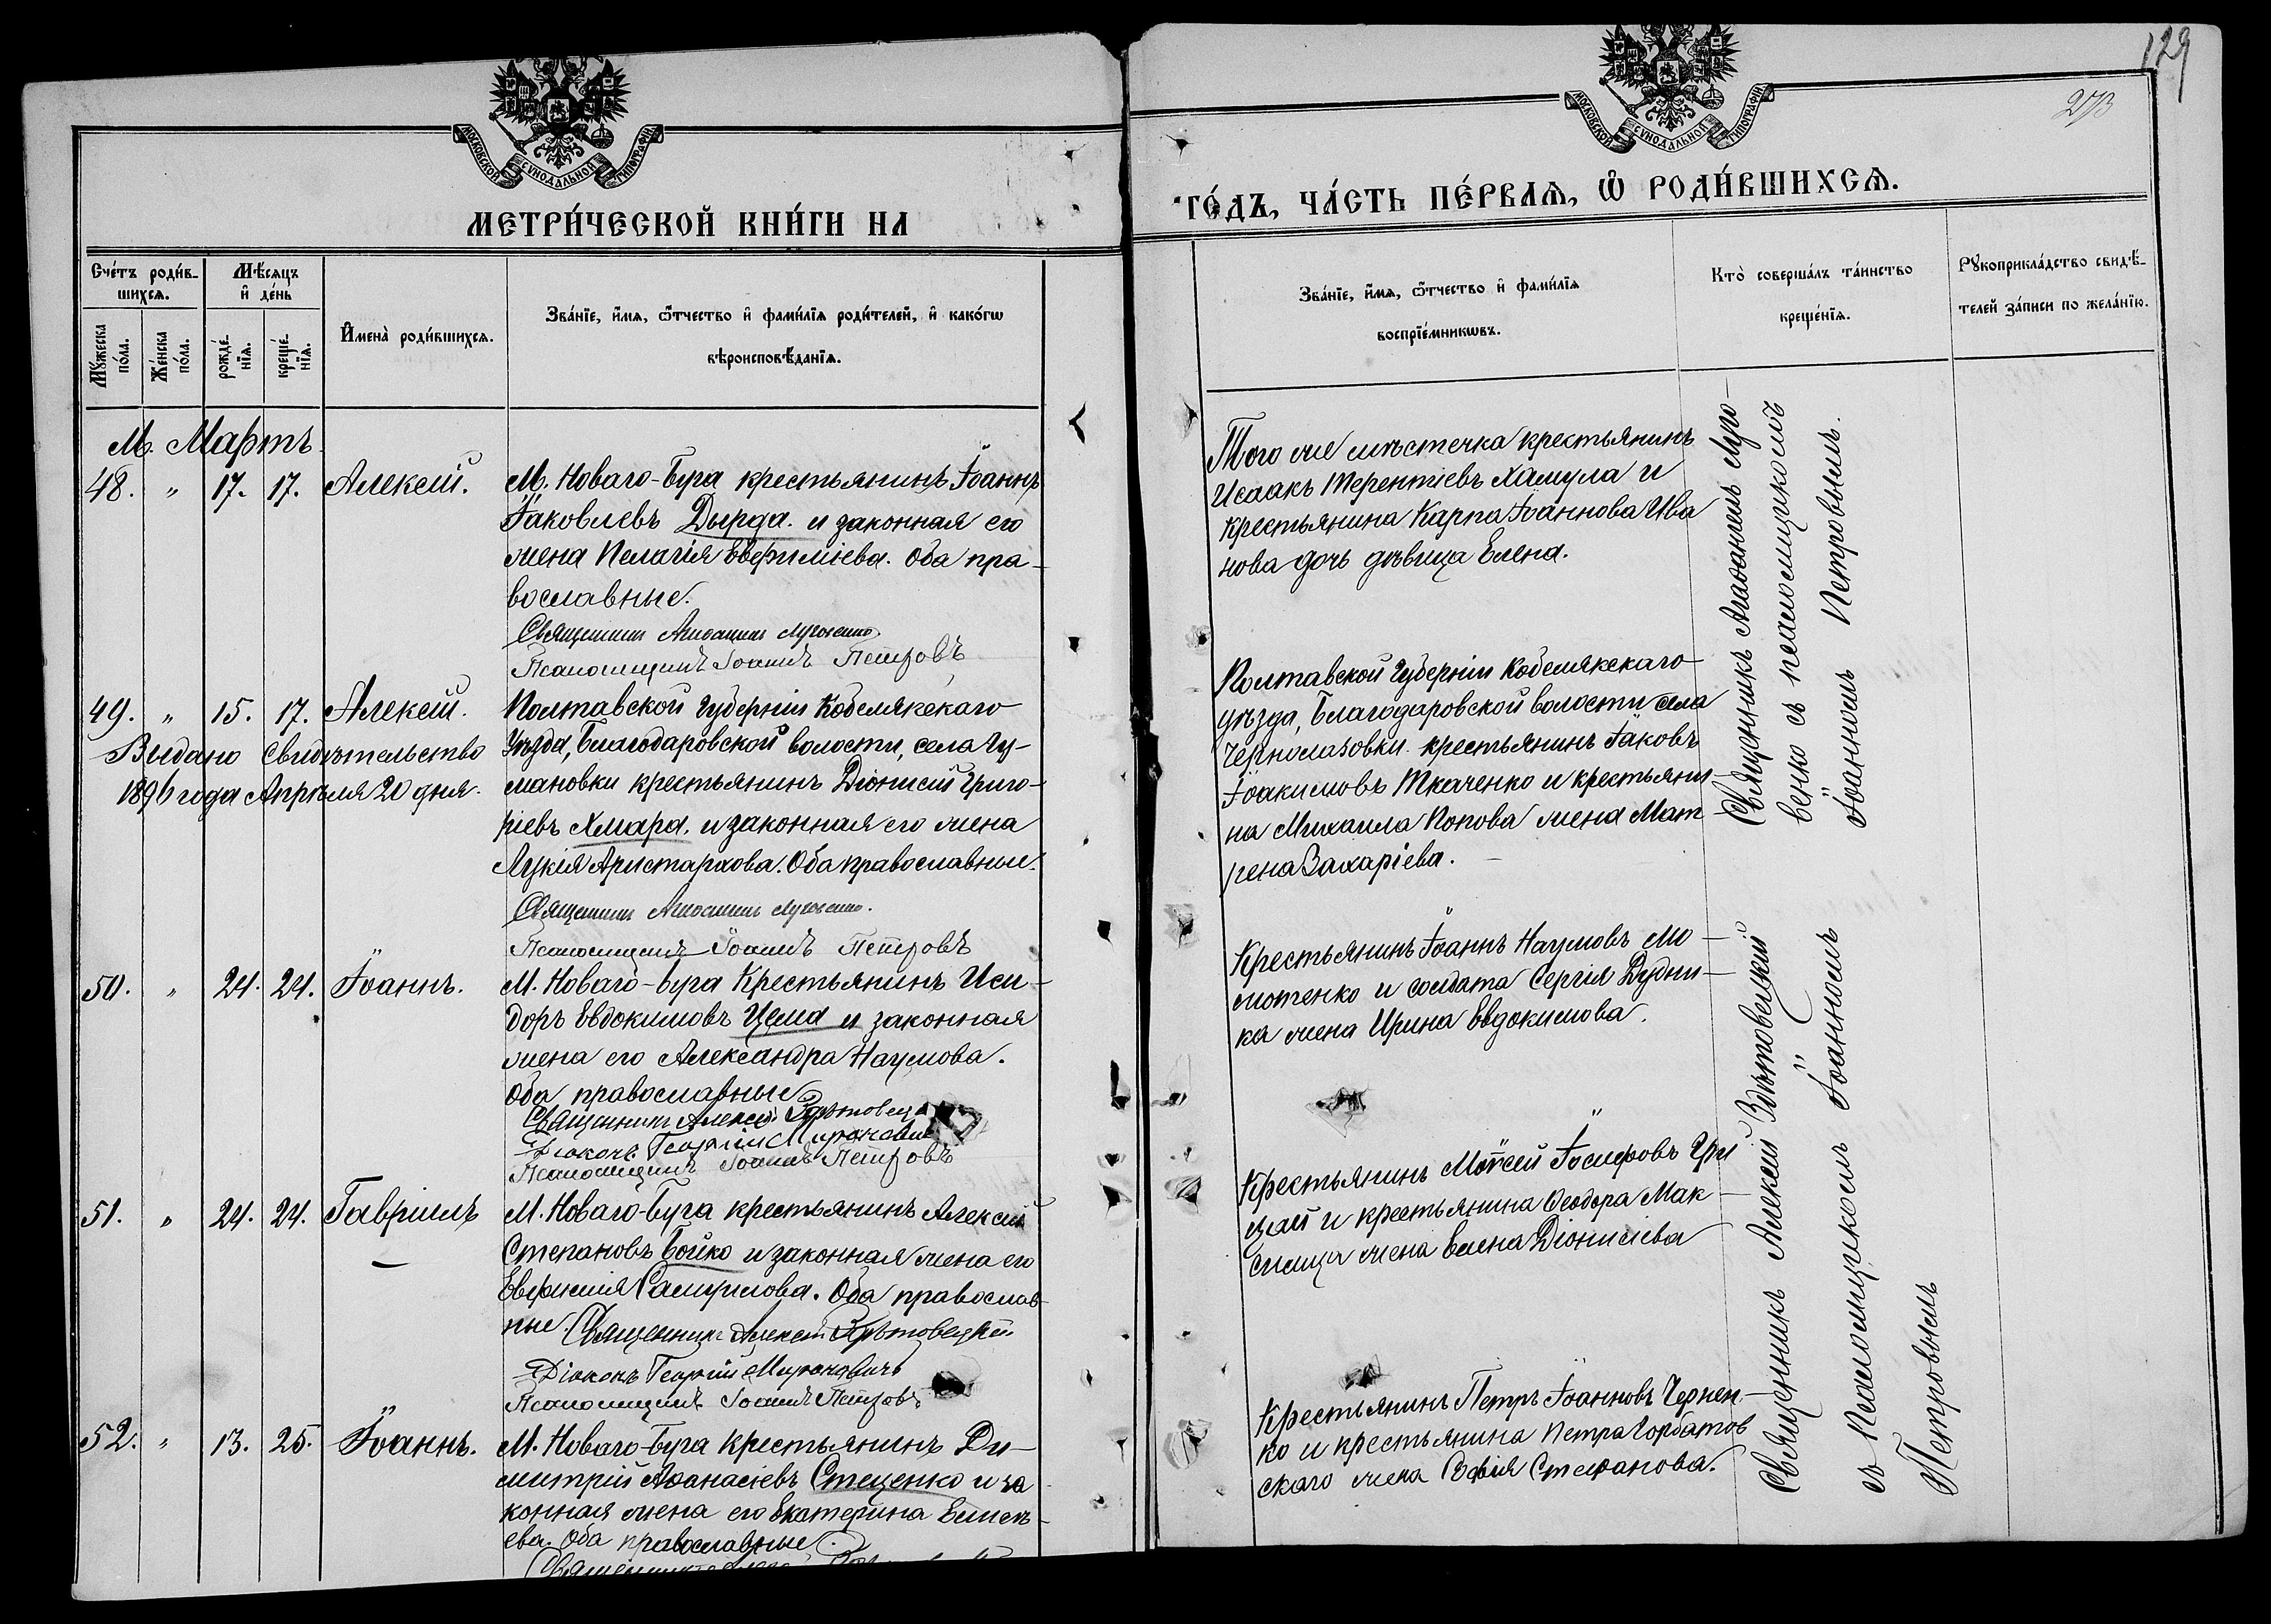 129
273
МОСКОВСКОЙ СѴНОДАЛЬНОЙ ТИПОГРАФІИ
МОСКОВСКОЙ СѴНОДАЛЬНОЙ ТИПОГРАФІИ
МЕТРИ́ЧЕСКОЙ КНИ́ГИ НА
ГО́ДЪ, ЧА́СТЬ ПЕ́РВАѦ, Ѿ РОДИ́ВШИХСѦ.
Сче́тъ роди́в-
шихсѧ.
Мѣ́сѧцъ
и҆ де́нь
Мꙋ́жеска
по́ла.
Же́нска
по́ла.
рожде́-
нїѧ.
креще́-
нїѧ.
И҆мена̀ роди́вшихсѧ.
Зва́нїе, и҆́мѧ, ѻ҆́тчество и҆ фами́лїѧ роди́телей, и҆ како́гѡ
вѣроисповѣ́данїѧ.
Зва́нїе, и҆́мѧ, ѻ҆́тчество и҆ фами́лїѧ
воспрїе́мникѡвъ.
Кто̀ соверша́лъ та́инство
креще́нїѧ.
Рꙋкоприкла́дство свидѣ́-
телей за́писи по жела́нїю.
М. Мартъ
48. " 17. 17. Алексій.
М. Новаго-Буга крестьянинъ Іоаннъ
Іаковлевъ Дырда. и законная его
жена Пелагія Евѳиміева. Оба пра-
вославные.
Священникъ Агаѳангелъ Луговенко
Псаломщикъ Іоаннъ Петровъ
Того же мѣстечка крестьянинъ
Исаакъ Терентіевъ Хамула и
крестьянина Карпа Іоаннова Ива
нова дочь дѣвица Елена.
Священникъ Агаѳангелъ Луго-
венко съ псаломщикомъ
Іоанномъ Петровымъ.
49. " 15. 17. Алексій.
Выдано свидѣтельство
1896 года Апрѣля 20 дня.
Полтавской губерніи Кобелякскаго
Уѣзда, Благодаровской волости, села Гу-
мановки крестьянинъ Діонисій Григо-
ріевъ Хмара. и законная его жена
Лукія Аристархова. Оба православные.
Священникъ Агаѳангелъ Луговенко.
Псаломщикъ Іоаннъ Петровъ
Полтавской Губерніи Кобелякскаго
уѣзда, Благодаровской волости села
Черноглазовки крестьянинъ Іаковъ
Іоакимовъ Ткаченко и крестьяни-
на Михаила Попова жена Мат-
рена Захаріева.
50. " 24. 24. Іоаннъ.
М. Новаго-Буга Крестьянинъ Иси-
доръ Евдокимовъ Цема и законная
жена его Александра Наумова.
Оба православные
Священникъ Алексій Здѣтовецкій
Діаконъ Георгій Мироновичъ
Псаломщикъ Іоаннъ Петровъ
Крестьянинъ Іоаннъ Наумовъ Мо-
лотенко и солдата Сергія Дудни-
ка жена Ирина Евдокимова.
Священникъ Алексій Здѣтовецкій
съ Псаломщикомъ Іоанномъ
Петровымъ
51. " 24. 24. Гавріилъ
М. Новаго-Буга крестьянинъ Алексій
Степановъ Бойко и законная жена его
Евфимія Самуилова. Оба православ-
ные. Священникъ Алексій Здѣтовецкій
Діаконъ Георгій Мироновичъ
Псаломщикъ Іоаннъ Петровъ
Крестьянинъ Моѵсей Іосифовъ Гри
цай и крестьянина Ѳеодора Мак-
симца жена Елена Діонисіева
52. " 13. 25. Іоаннъ.
М. Новаго-Буга Крестьянинъ Ди-
митрій Аѳанасіевъ Стеценко и за
конная жена его Екатерина
Оба православные.
Священникъ
Крестьянинъ Петръ Іоанновъ Чернен-
ко и крестьянина Петра Горбатов
скаго жена Софія Стефанова.